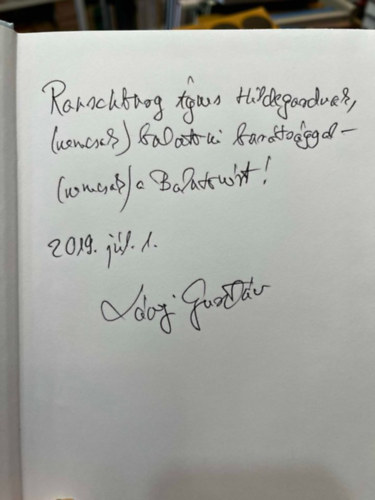 Ranschburg Ágnes Hildegardnak,
(nemcsak) balatoni barátsággal –
(nemcsak) a Balatonért!
2019. júl. 1.
Láng Gusztáv